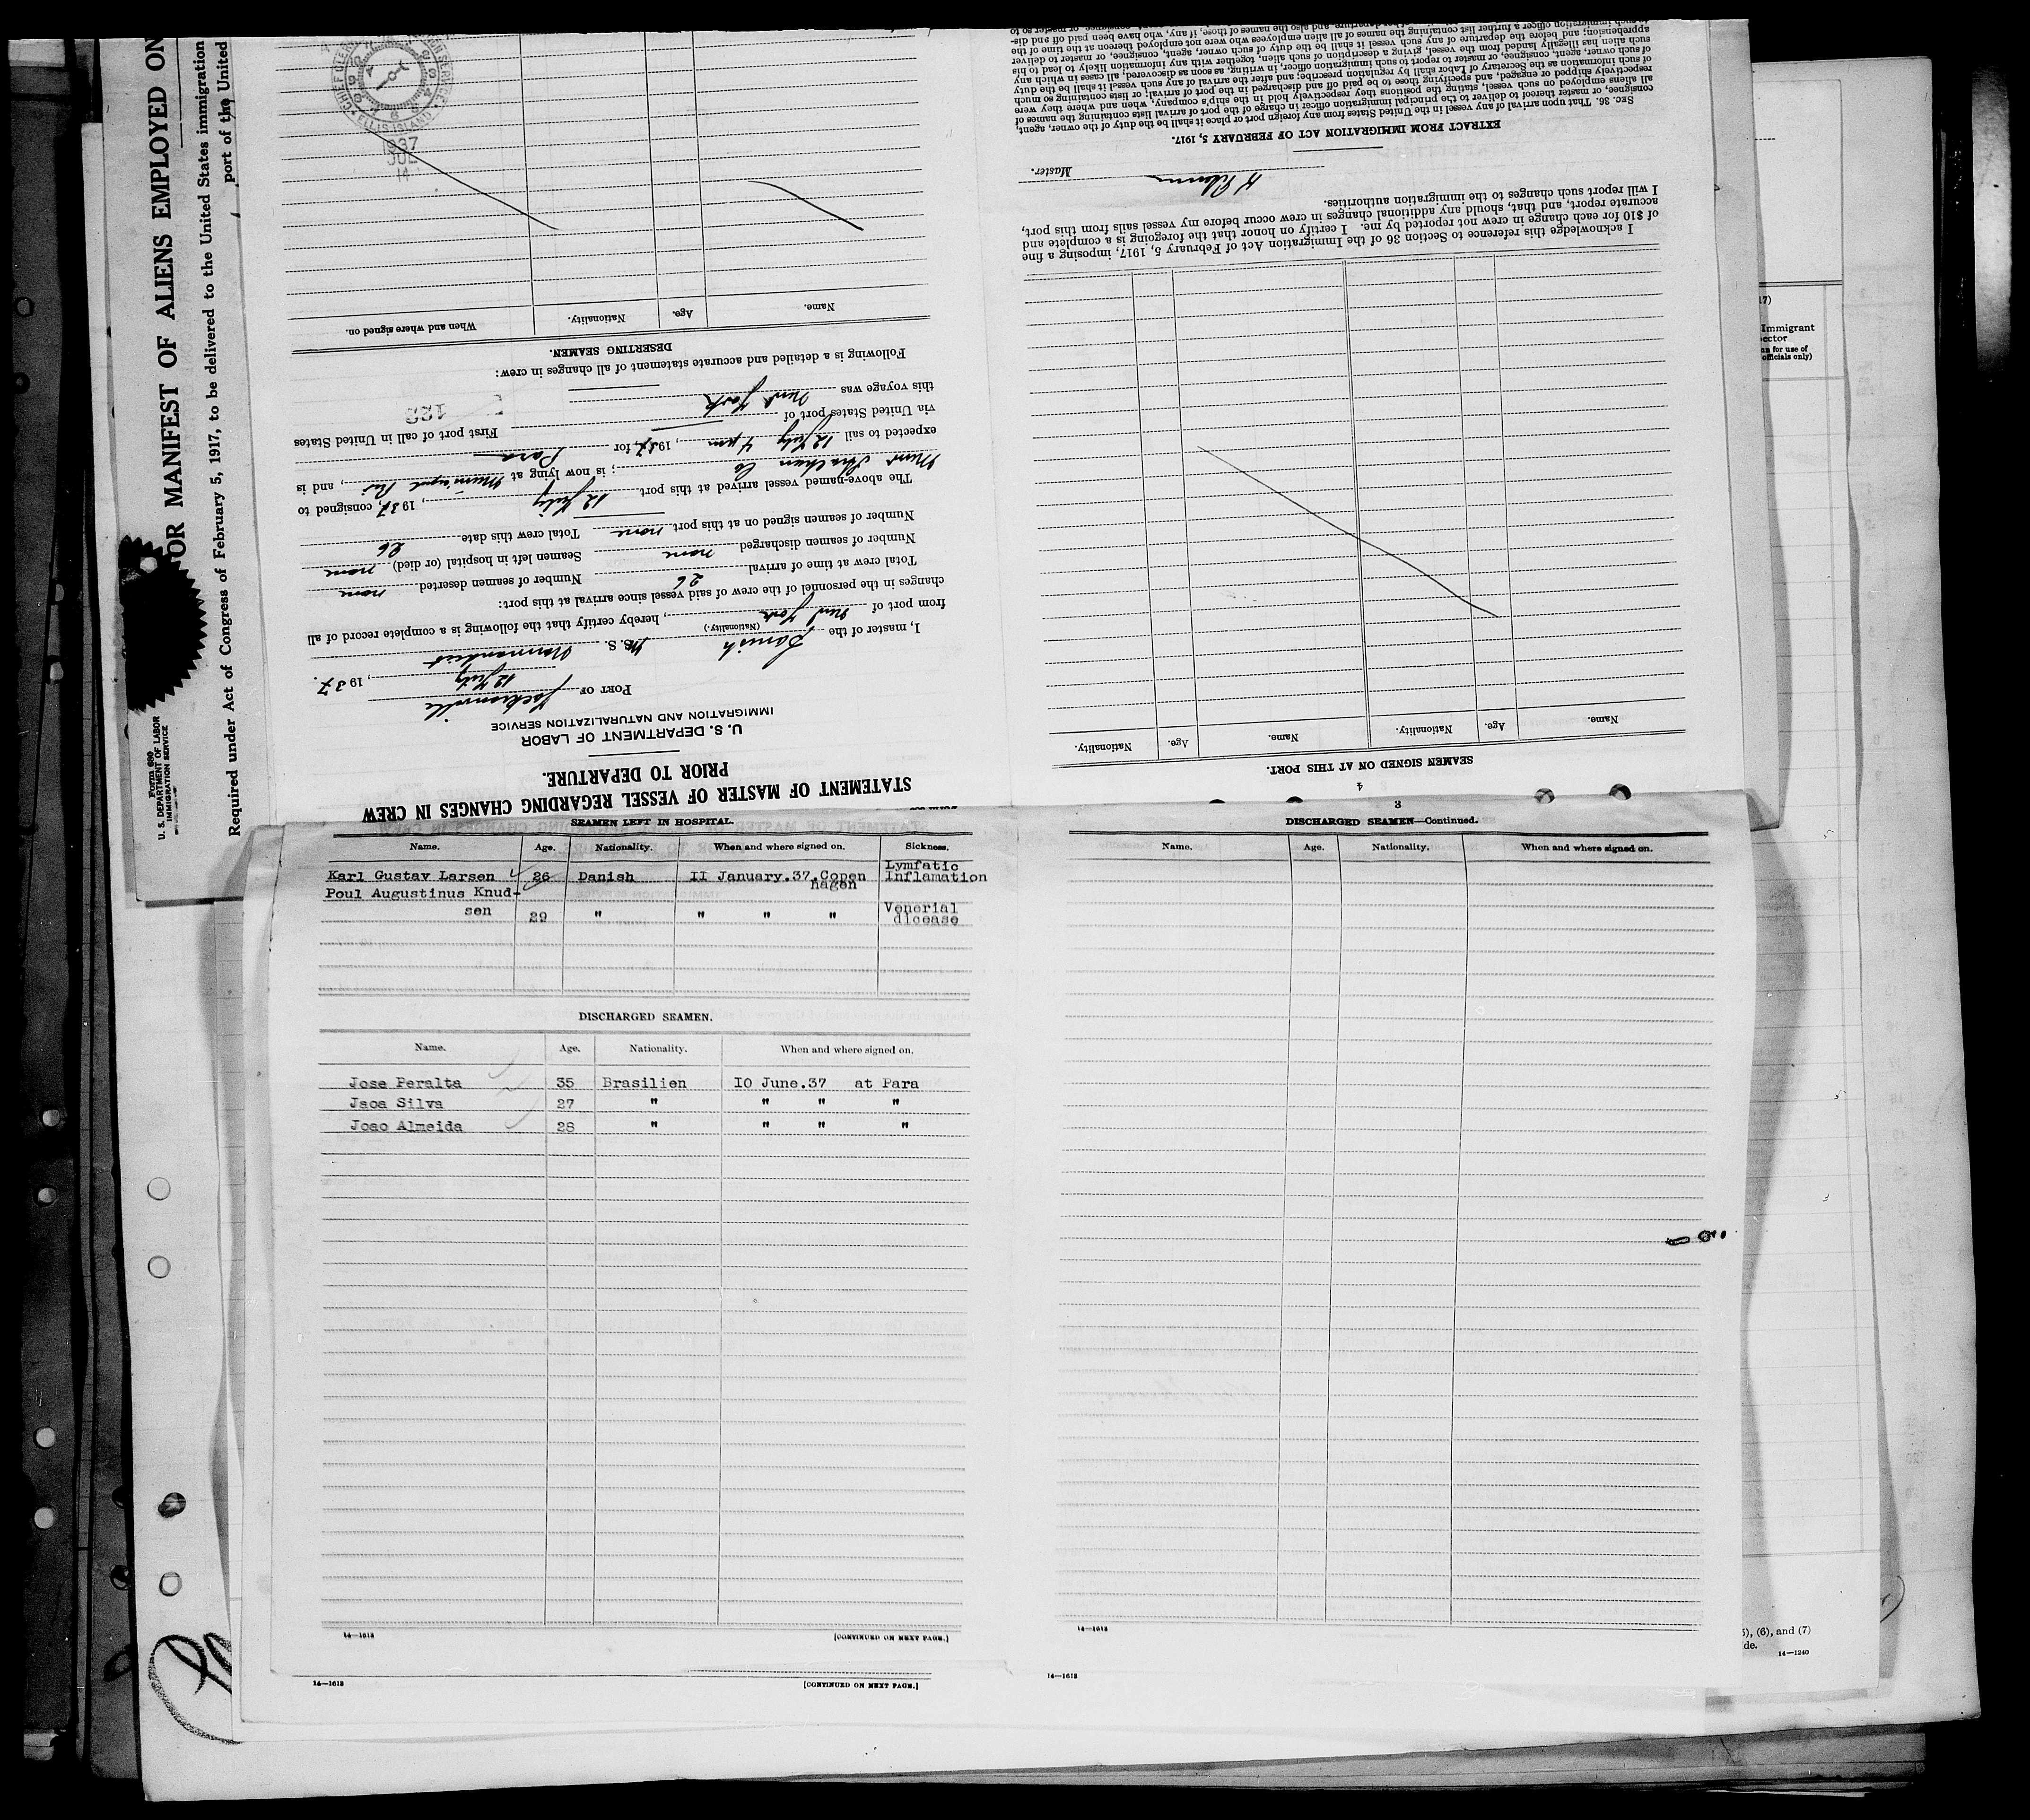 OR MANIFEST OF ALIENS EMPLOYED ON
Required under Act of Congress of February 5, 1917, to be delivered to the United States immigration
port of the United
Form 680
U. S. DEPARTMENT OF LABOR
IMMIGRATION SERVICE
STATEMENT OF MASTER OF VESSEL REGARDING CHANGES IN CREW
PRIOR TO DEPARTURE.
U. S. DEPARTMENT OF LABOR
IMMIGRATION AND NATURALIZATION SERVICE
PORT OF Jacksonville
12 July, 1937.
I, master of the Danish M. S. Normandiet
(Nationality.)
from port of New York, hereby certify that the following is a complete record of all
changes in the personnel of the crew of said vessel since arrival at this port:
Total crew at time of arrival 26 Number of seamen deserted none
Number of seamen discharged none Seamen left in hospital (or died) none
Number of seamen signed on at this port none Total crew this date 26
The above-named vessel arrived at this port 12 July, 1937, consigned to
; is now lying at Municipal, and is
expected to sail 12 July 4 pm, 1937 for Para
via United States port of First port of call in United States
this voyage was New York
128
Following is a detailed and accurate statement of all changes in crew:
DESERTING SEAMEN.
Name. Age. Nationality. When and where signed on.
ELLIS ISLAND
1937
JUL
14
4
SEAMEN SIGNED ON AT THIS PORT.
Name. Age. Nationality. Name. Age. Nationality.
I acknowledge this reference to Section 36 of the Immigration Act of February 5, 1917, imposing a fine
of $10 for each change in crew not reported by me. I certify on honor that the foregoing is a complete and
accurate report, and that, should any additional changes in crew occur before my vessel sails from this port,
I will report such changes to the immigration authorities.
Master.
EXTRACT FROM IMMIGRATION ACT OF FEBRUARY 5, 1917.
Sec. 36. That upon arrival of any vessel in the United States from any foreign port or place it shall be the duty of the owner, agent,
consignee, or master thereof to deliver to the principal immigration officer in charge of the port of arrival lists containing the names of
all aliens employed on such vessel, stating the positions they respectively hold in the ship's company, when and where they were
respectively shipped or engaged, and specifying those to be paid off and discharged in the port of arrival; or lists containing so much
of such information as the Secretary of Labor shall by regulation prescribe; and after the arrival of any such vessel it shall be the duty
of such owner, agent, consignee, or master to report to such immigration officer, in writing, as soon as discovered, all cases in which any
such alien has illegally landed from the vessel, giving a description of such alien, together with any information likely to lead to his
apprehension; and before the departure of any such vessel it shall be the duty of such owner, agent, consignee, or master to deliver
to such immigration officer a further list containing the names of all alien employees who were not employed thereon at the time of the
SEAMEN LEFT IN HOSPITAL.
Name. Age. Nationality. When and where signed on. Sickness.
Karl Gustav Larsen 26 Danish II January.37.Copen hagen Lymfatic Inflamation
Poul Augustinus Knud-
sen 29 " " " " Venerial dicease
DISCHARGED SEAMEN.
Name. Age. Nationality. When and where signed on.
Jose Peralta 35 Brasilien IO June.37 at Para
Jaoa Silva 27 " " " "
Joao Almeida 28 " " " "
14—1613 [CONTINUED ON NEXT PAGE.]
14—1613 [CONTINUED ON NEXT PAGE.]
3
DISCHARGED SEAMEN—Continued.
Name. Age. Nationality. When and where signed on.
14—1613
14—1613
17)
Immigrant
officials only)
(6), and (7)
de.
14—1240